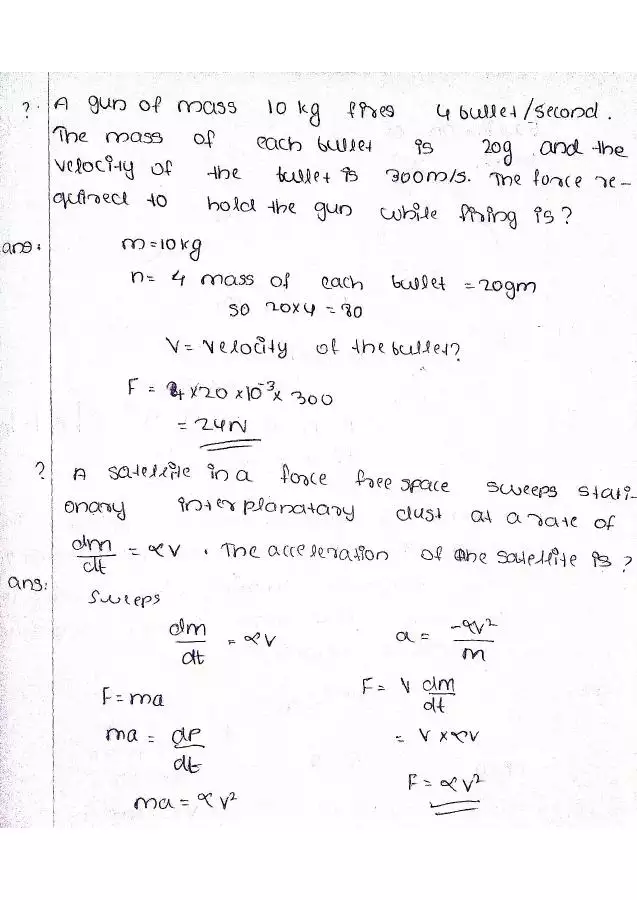 ? A gun of mass 10 kg fires 4 bullet/second.
The mass of each bullet is 20g and the
velocity of the bullet is 300m/s. The force re-
quired to hold the gun while firing is?
ans: m=10kg
n= 4 mass of each bullet = 20gm
so 20x4 = 80
V= Velocity of the bullet?
F = 4 x 20 x 10⁻³ x 300
= 24N
? A satellite in a force free space sweeps stati-
onary interplanatary dust at a rate of
dm/dt = αV . The acceleration of the satellite is ?
ans:
Sweeps
dm/dt = αV
a = -αV²/m
F=ma
F= V dm/dt
ma = dP/dt
= V x αV
ma = αV²
F = αV²